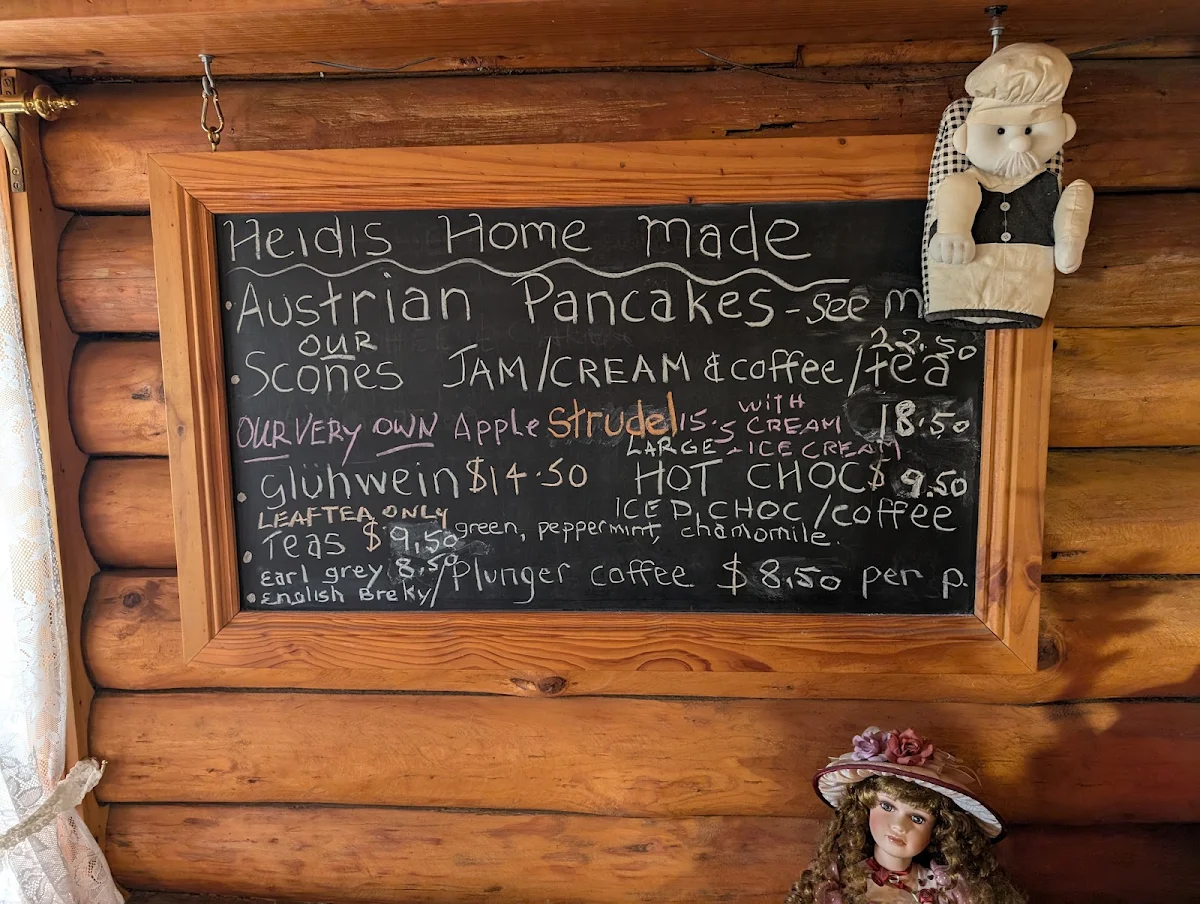 Heidis Home made
Austrian Pancakes - see m
OUR 22.50
Scones JAM/CREAM & coffee/tea
OUR VERY OWN Apple Strudel 15.5 WITH CREAM 18.50
LARGE + ICE CREAM
glühwein $14.50 HOT CHOC $ 9.50
LEAF TEA ONLY ICED CHOC/coffee
Teas $9.50 green, peppermint, chamomile.
Earl grey 8.50 / Plunger coffee $8.50 per p.
English Breky